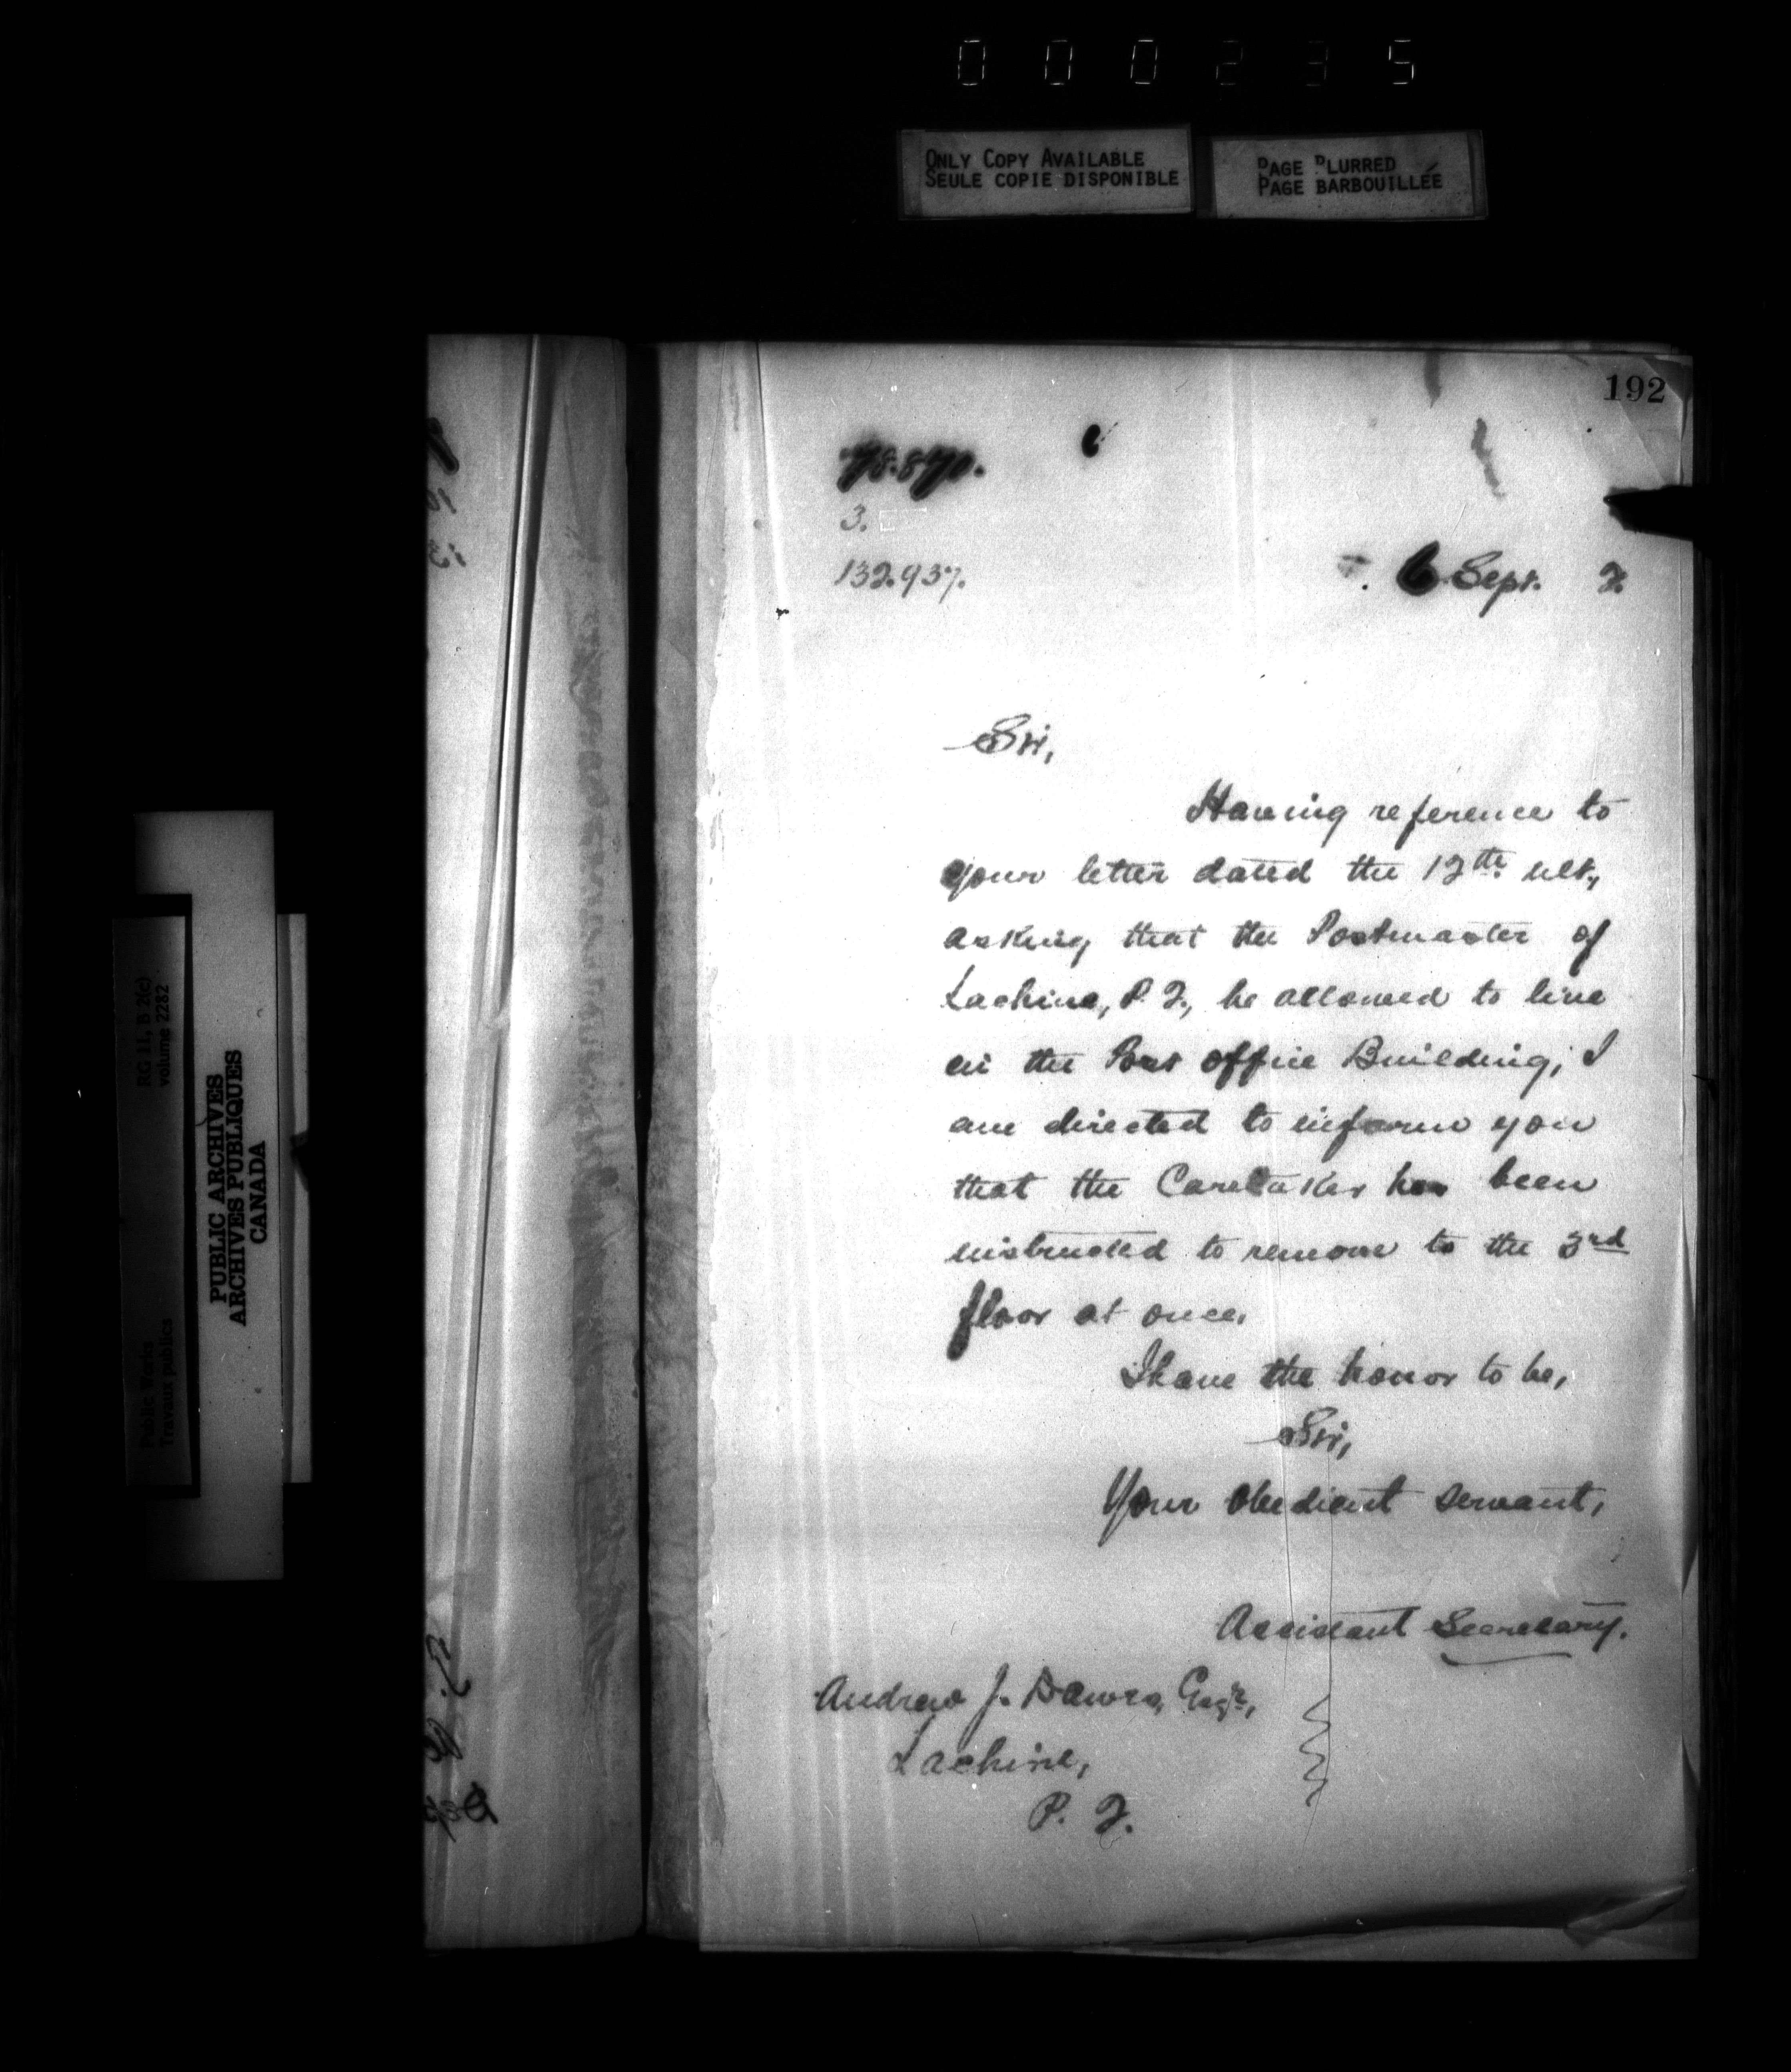 000235
ONLY COPY AVAILABLE
SEULE COPIE DISPONIBLE
PAGE BLURRED
PAGE BARBOUILLÉE
192
78.870.
3.
132.937.
6 Sept. 2.
Sir,
Having reference to
your letter dated the 12th. ult.,
asking that the Postmaster of
Lachine, P. Q., be allowed to live
in the Post Office Building, I
am directed to inform you
that the Caretaker has been
instructed to remove to the 3rd
floor at once.
I have the honor to be,
Sir,
Your obedient servant,
Assistant Secretary.
Andrew J. Dawes, Esqr.,
Lachine,
P. Q.
RG 11, B 2(c)
volume 2282
Public Works
Travaux publics
PUBLIC ARCHIVES
ARCHIVES PUBLIQUES
CANADA